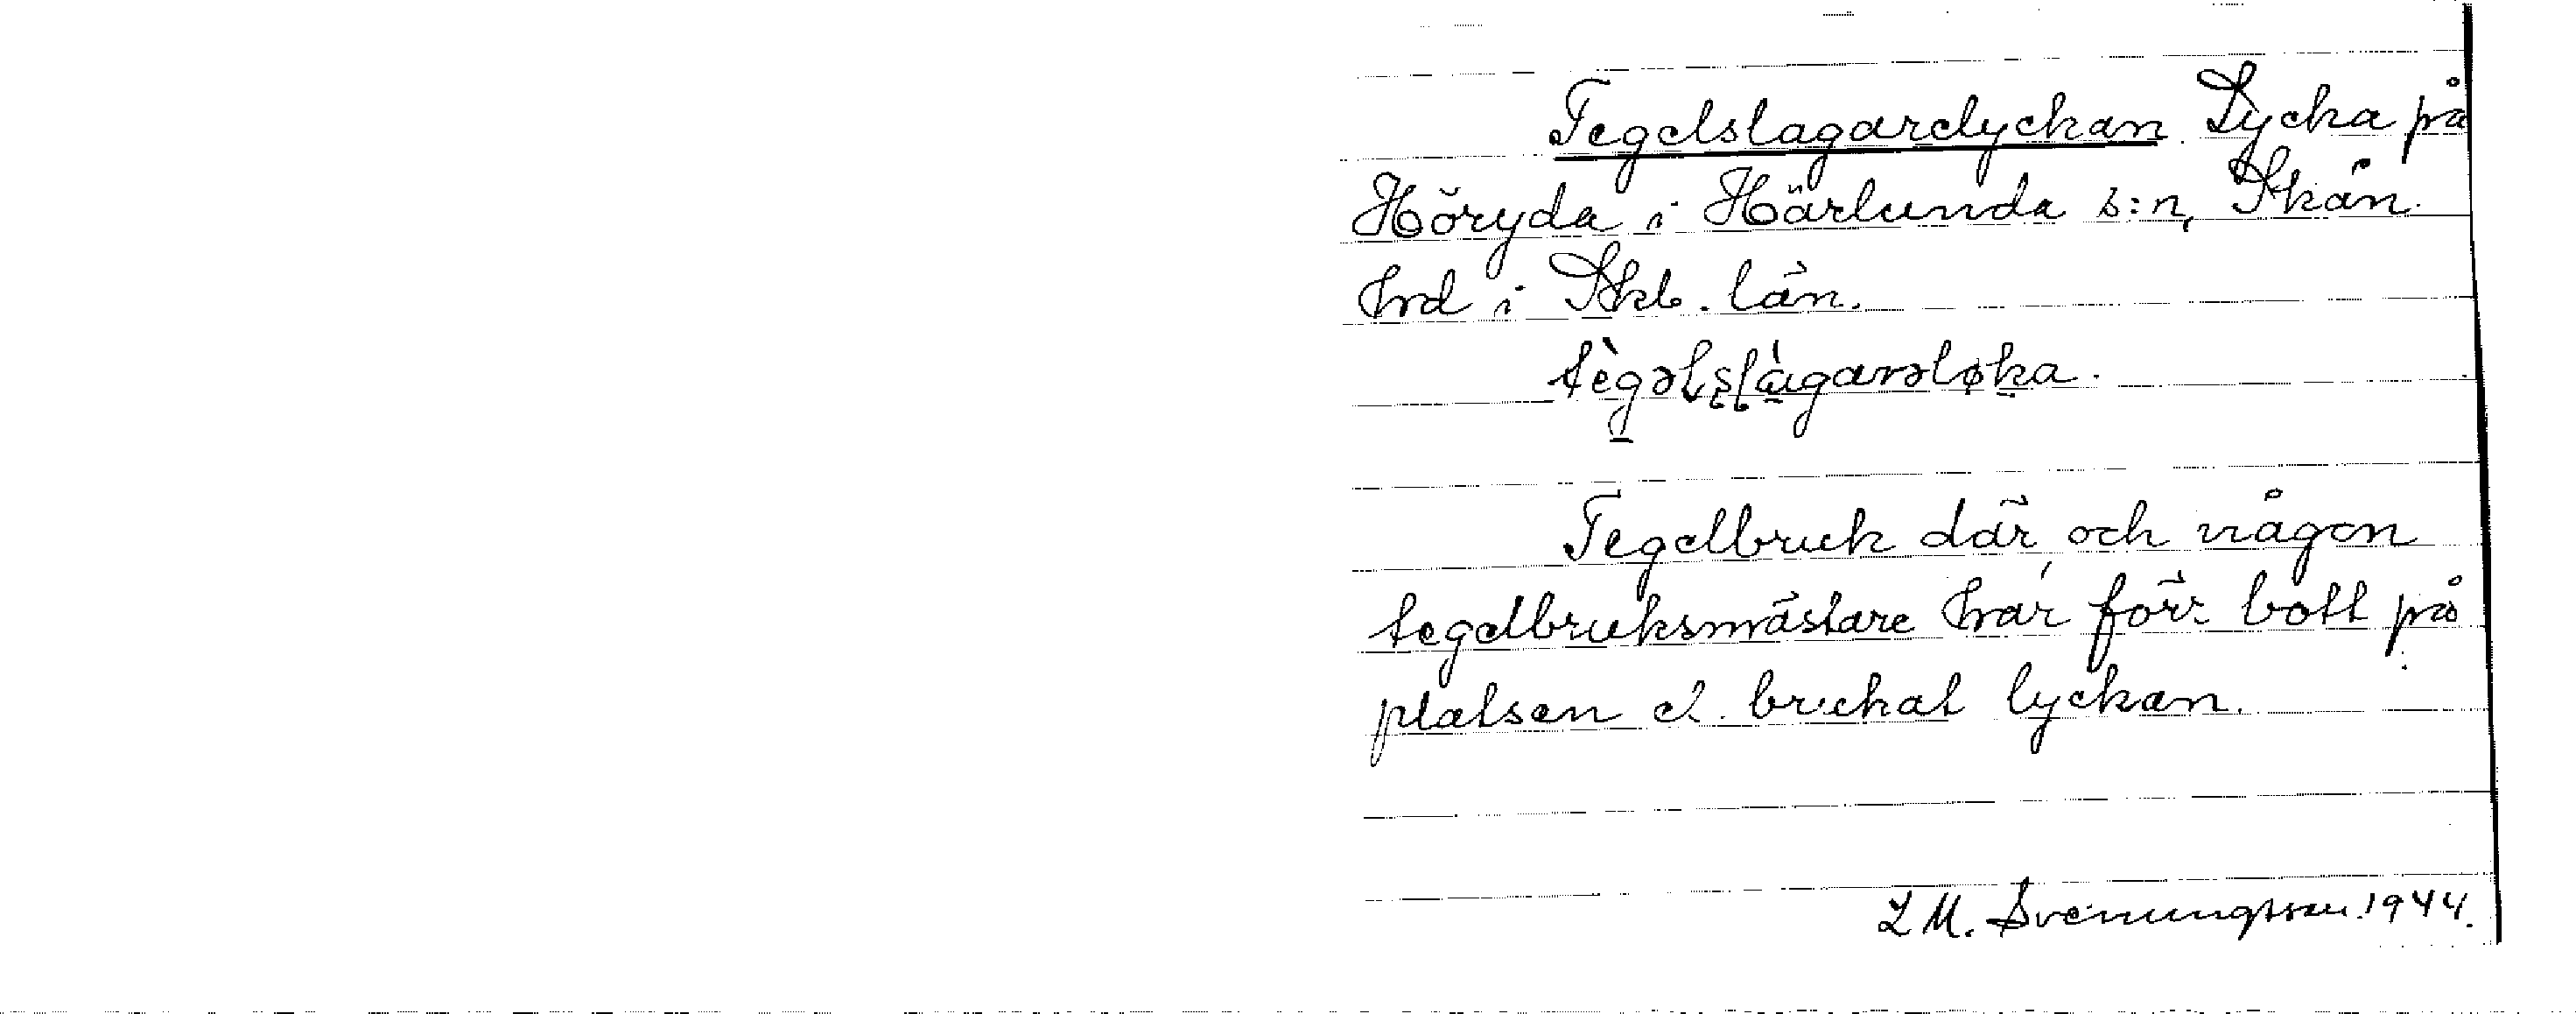 Tegelslagarelyckan. Lycka på
Höryda i Härlunda s:n, Skån.
hrd i Skb. län.
Tegelbruk där, och någon
tegelbruksmästare har förr bott på
platsen o. brukat lyckan.
L M. Svenungsson. 1944.